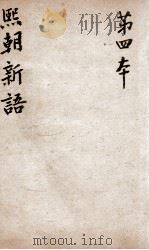 第四本
熙朝新語
www.duxiu.com